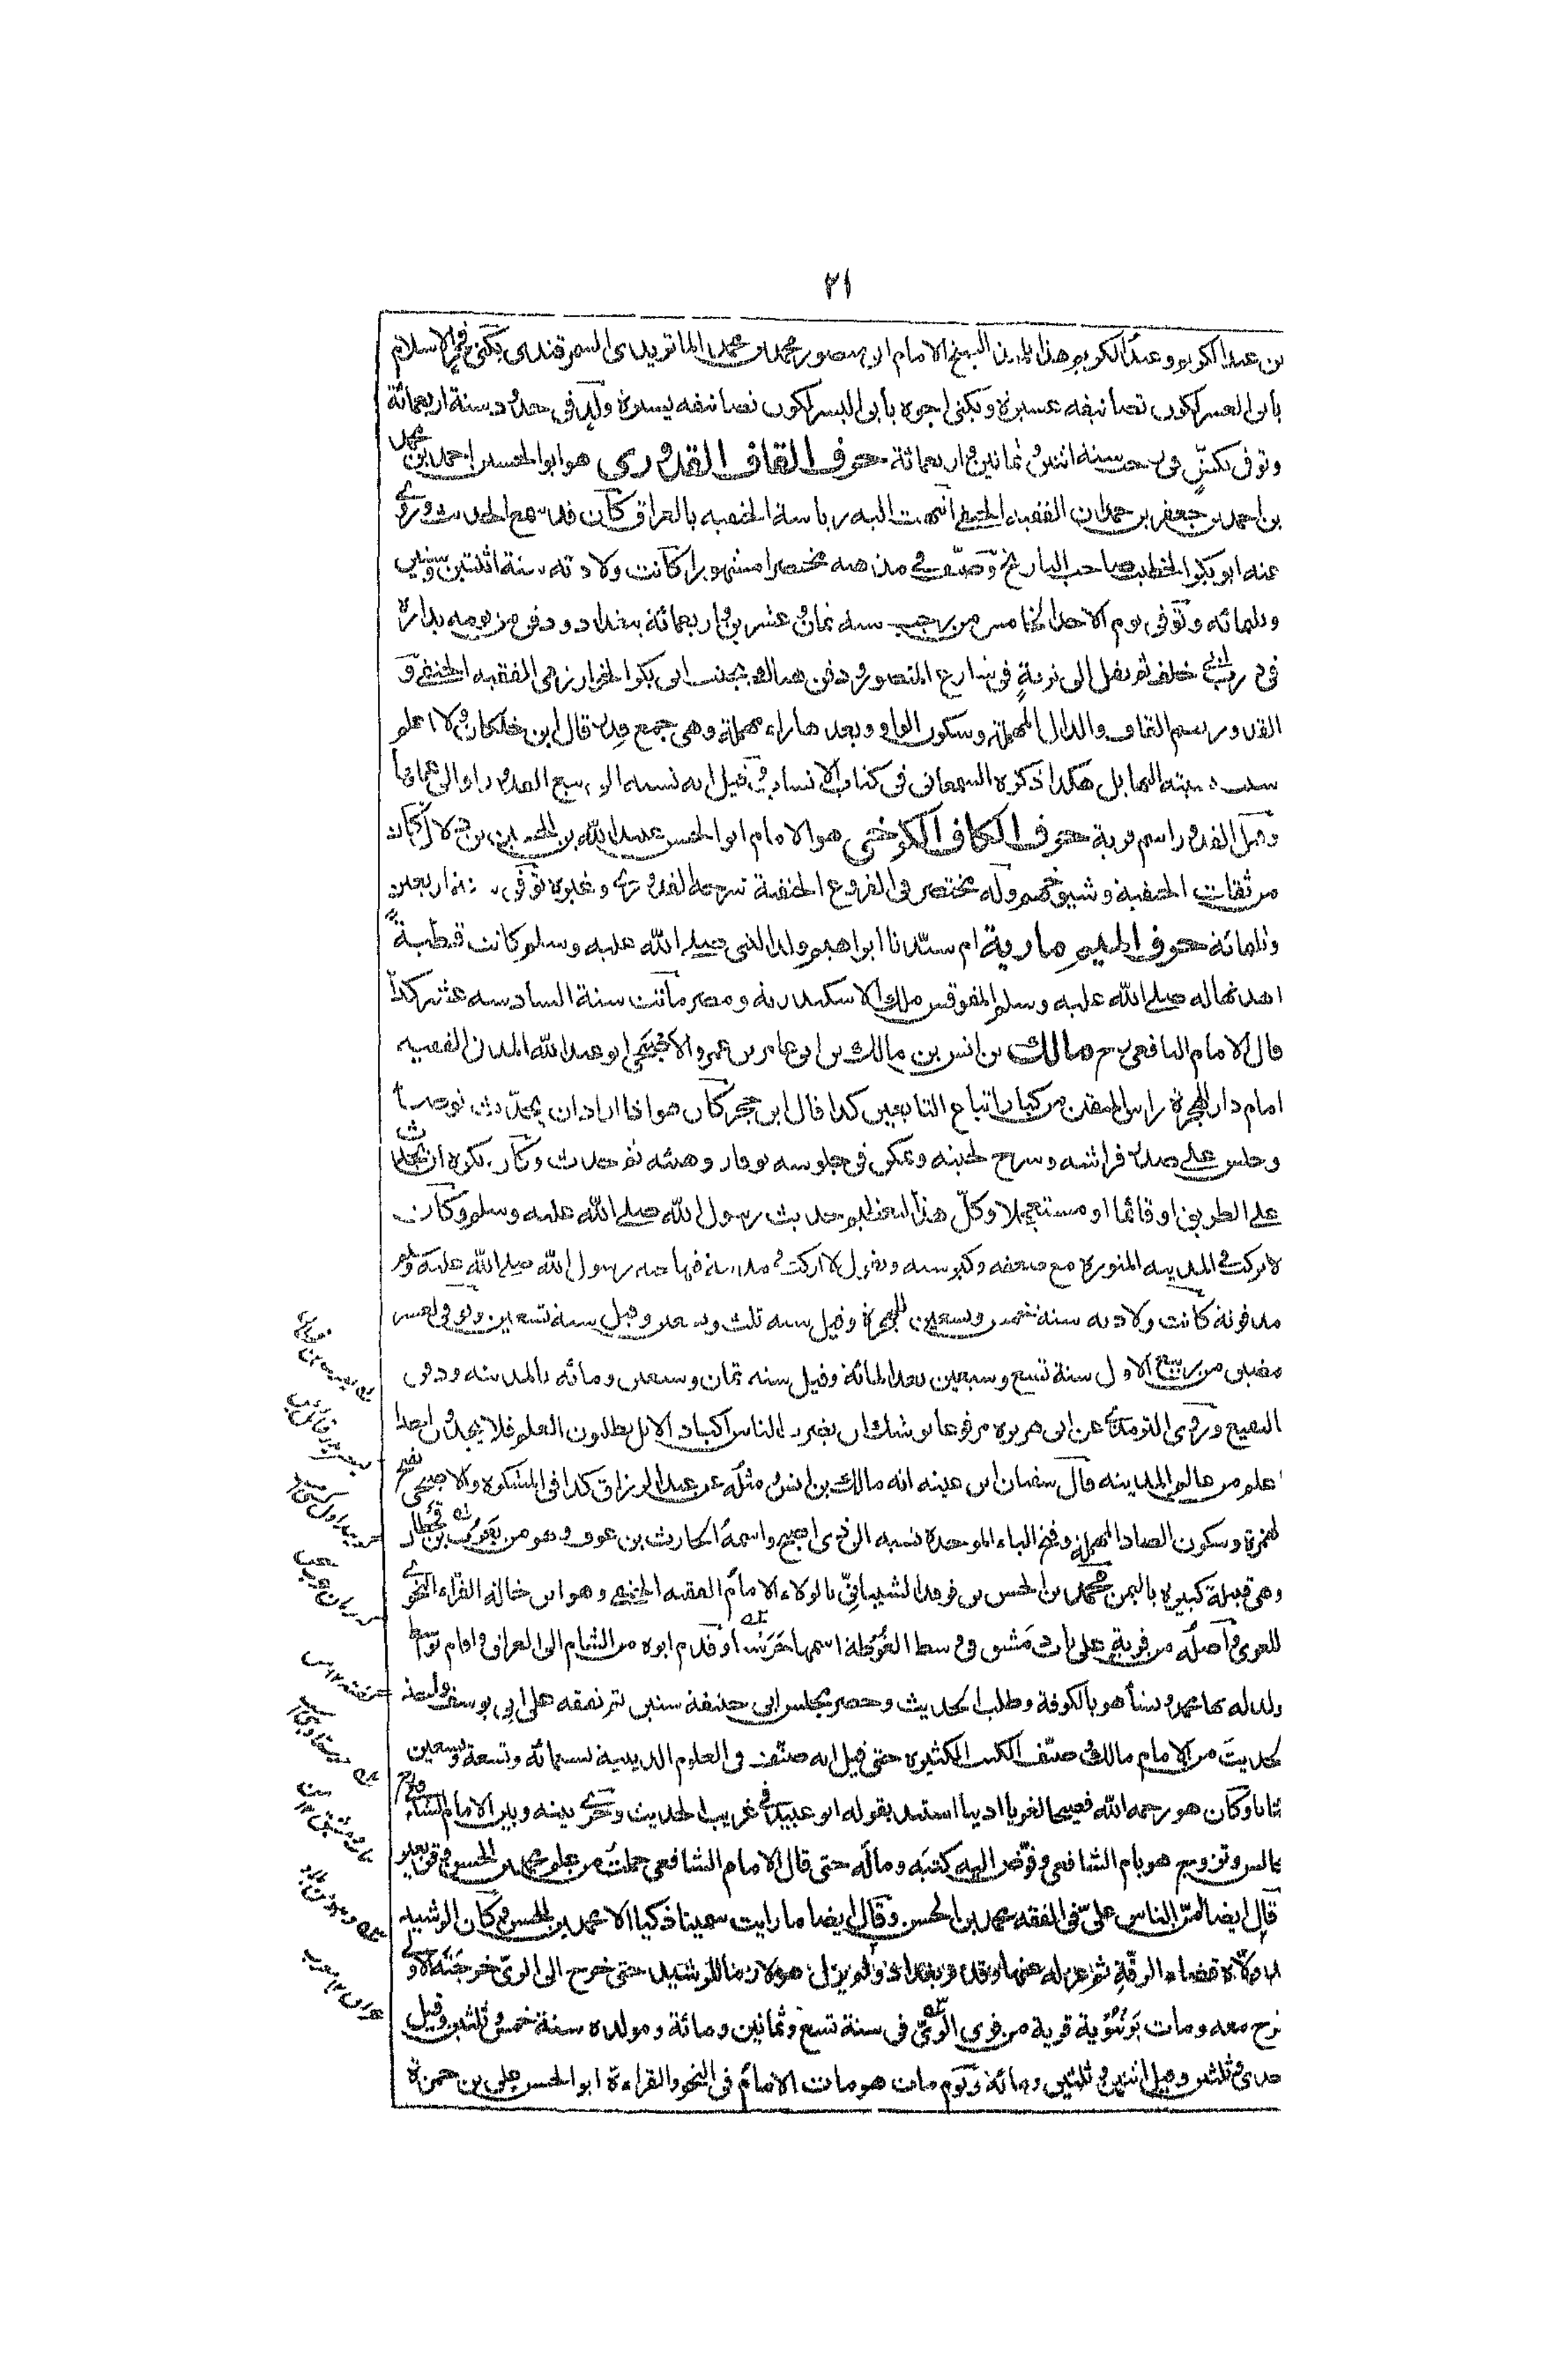 ٢١
بن عبد الكريم وعبد الكريم هذا تلميذ الشيخ الامام ابي منصور محمد بن محمد الماتريدى السمرقندى يكنى فخر الاسلام
بابى العسر لكون تصانيفه عسيرة ويكنى اخوه بابى اليسر لكون تصانيفه يسيرة ولد فى حدود سنة اربعمائة
وتوفى بكش فى رجب سنة اثنين وثمانين واربعمائة حرف القاف القدورى هو ابو الحسين احمد بن محمد
بن احمد بن جعفر بن حمدان الفقيه الحنفى انتهت اليه رياسة الحنفيه بالعراق كان قد سمع الحديث وروى
عنه ابو بكر الخطيب صاحب التاريخ وصنف فى مذهبه مختصرا مشهورا كانت ولادته سنة اثنتين وستين
وثلثمائه وتوفى يوم الاحد الخامس من رجب سنه ثمان وعشرين واربعمائة ببغداد ودفن من يومه بداره
فى درب ابى خلف ثم نقل الى تربة فى شارع المنصور ودفن هناك بجنب ابى بكر الخوارزمى الفقيه الحنفى و
القدور بضم القاف والدال المهملة وسكون الواو وبعدها راء مهملة وهى جمع قدر قال ابن خلكان ولا اعلم
سبب نسبته اليها بل هكذا ذكره السمعانى فى كتاب الانساب وقيل انه نسبه الى بيع القدور او الى عملها
وقيل القدور اسم قرية حرف الكاف الكرخى هو الامام ابو الحسن عبيد الله بن الحسين بن دلال كان
من ثقات الحنفية وشيوخهم وله مختصر فى الفروع الحنفية شرحه القدورى وغيره توفى سنة اربعين
وثلثمائة حرف الميم مارية ام سيدنا ابراهيم ولد النبى صلے الله عليه وسلم كانت قبطية
اهداها له صلے الله عليه وسلم المقوقس ملك الاسكندرية ومصر ماتت سنة السادسه عشر كذا
قال الامام اليافعى رح مالك بن انس بن مالك بن ابى عامر بن عمرو الاصبحى ابو عبد الله المدنى الفقيه
امام دار الهجرة راس المتقين من كبار اتباع التابعين كذا قال ابن حجر كان هو اذا اراد ان يحدث توضأ
وجلس على صدر فراشه وسرح لحيته وتمكن فى جلوسه بوقار وهيئه ثم حدث وكان يكره ان يحدث
على الطريق او قائما او مستعجلا وكل هذا لتعظيم حديث رسول الله صلے الله عليه وسلم وكان
لا يركب فى المدينه المنوره مع ضعفه وكبر سنه ويقول لا اركب فى مدينة فيها جثه رسول الله صلے الله عليه وسلم
مدفونة كانت ولادته سنة خمس وتسعين للهجرة وقيل سنه ثلث وتسعين وقيل سنة تسعين وتوفى لعشر
مضين من ربيع الاول سنة تسع وسبعين بعد المائة وقيل سنه ثمان وسبعين ومائه بالمدينه ودفن
البقيع وروى الترمذى عن ابى هريره مرفوعا يوشك ان يضرب الناس اكباد الابل يطلبون العلم فلا يجدون احدا
اعلم من عالم المدينه قال سفيان ابن عيينه انه مالك بن انس ومثله عن عبد الرزاق كذا فى المشكوه والاصبحى بفتح
الهمزة وسكون الصاد المهملة وفتح الباء الموحدة نسبه الى ذى اصبح واسمه الحارث بن عوف وهو من يعرب بن قحطان
وهى قبيلة كبيره باليمن محمد بن الحسن بن فرقد الشيبانى بالولاء الامام الفقيه الحنفى وهو ابن خالة الفراء النحوى
اللغوى واصله من قرية على باب دمشق فى وسط الغوطة اسمها حرستا وقدم ابوه من الشام الى العراق واقام بواسط
ولد له بها محمد ونشأ هو بالكوفة وطلب الحديث وحضر مجلس ابى حنيفة سنين ثم تفقه على ابى يوسف واخذ
الحديث من الامام مالك وصنف الكتب الكثيره حتى قيل انه صنف فى العلوم الدينية تسعمائة وتسعة وتسعين
كتابا وكان هو رحمه الله فصيحا لغويا اديبا استند بقوله ابو عبيد فى غريب الحديث وجرى بينه وبين الامام الشافعى
مجالس وتزوج هو بام الشافعى وفوض اليه كتبه وماله حتى قال الامام الشافعى حملت من علم محمد بن الحسن وقر بعير
قال ايضا امن الناس علىّ فى الفقه محمد بن الحسن وقال ايضا ما رايت سمينا ذكيا الا محمد بن الحسن وكان الرشيد
قد ولاه قضاء الرقة ثم عزله عنها وقدم بغداد ولم يزل هو ملازما للرشيد حتى خرج الى الرى خرجته الاولى
خرج معه ومات برنبوية قرية من قرى الرى فى سنة تسع وثمانين ومائة ومولده سنة خمس وثلثين وقيل
احدى وثلثين وقيل اثنين وثلثين ومائة ويوم مات هو مات الامام فى النحو والقراءة ابو الحسن على بن حمزة